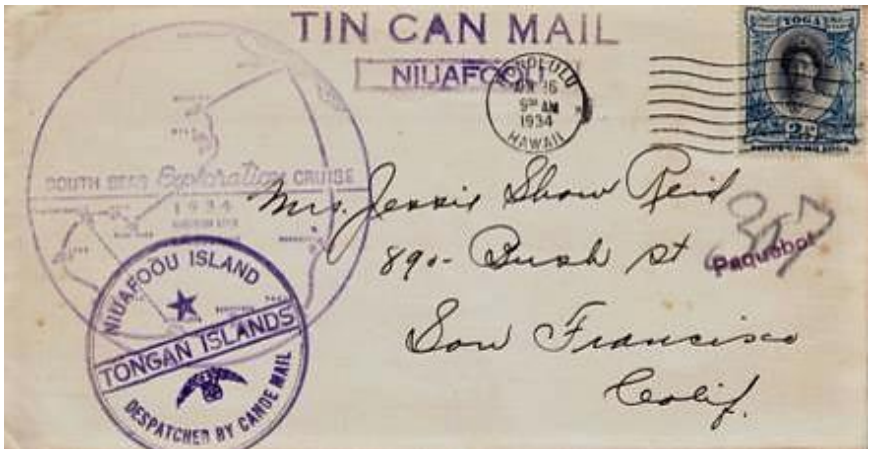 TIN CAN MAIL
NIUAFOOU
HONOLULU
9 AM
1934
HAWAII
TOGA
2½d
SOUTH SEAS Exploration CRUISE
1934
Mrs. Jessie Shaw Reid
890 - Bush St
San Francisco
Calif.
357
Paquebot
NIUAFOOU ISLAND
TONGAN ISLANDS
DESPATCHED BY CANOE MAIL